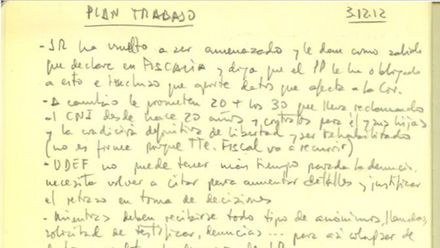 PLAN TRABAJO 3.12.12
- JR ha vuelto a ser amenazado y le dan como salida
que declare en FISCALIA y diga que el PP le ha obligado
a esto e incluso que aporte datos que afecte a la Cor.
- A cambio le prometen 20 + los 30 que lleva reclamando
al CNI desde hace 20 años y contratos para él y sus hijas
y la condición definitiva de libertad y ser rehabilitado
(no es firme porque TTE. Fiscal va a recurrir)
- UDEF no puede tener más tiempo parada la denuncia,
necesita volver a citar para aumentar detalles y justificar
el retraso en toma de decisiones
- Mientras deben recibirse todo tipo de anónimos, llamadas,
solicitud de testificar, denuncias ... para así colapsar de